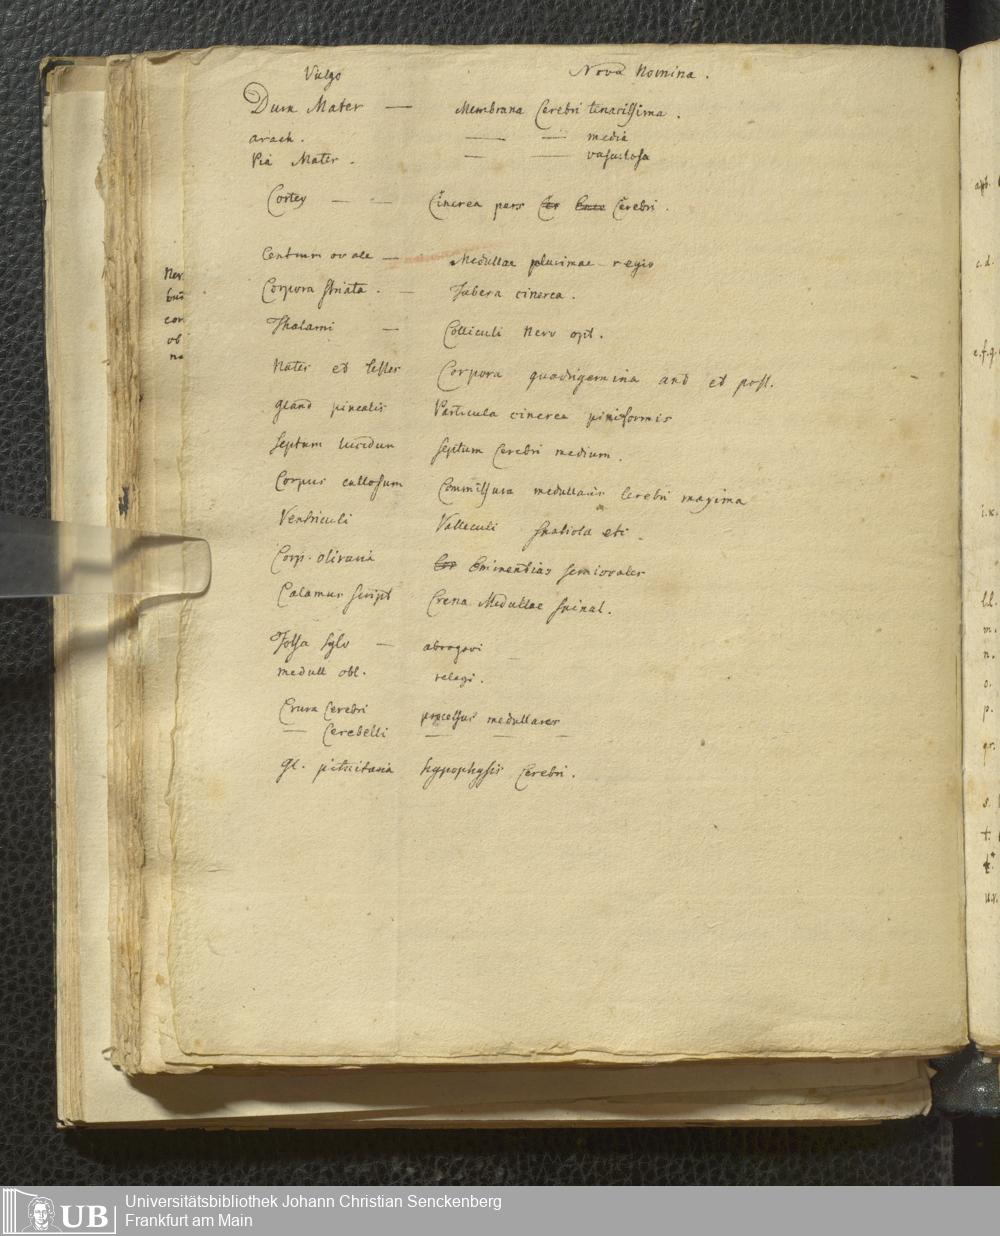 Vulgo Nova Nomina.
Dura Mater — Membrana Cerebri tenacissima.
arach. — — media
Pia Mater. — — vasculosa
Cortex — — Cinerea pars Cerebri.
Centrum ovale — Medullae plurimae regio
Corpora striata. — Tubera cinerea.
Thalami — Colliculi Nerv opt.
Nates et testes Corpora quadrigemina ant et post.
Gland pinealis Particula cinerea piniformis
Septum lucidum Septum Cerebri medium.
Corpus callosum Commissura medullaris Cerebri maxima
Ventriculi Valleculi
Corp. olivaria Eminentias semiovales
Calamus script Crena Medullae spinal.
Fossa Sylv —
medull obl.
Crura Cerebri processus medullares
— Cerebelli — — —
Gl. pituitaria hypophysis Cerebri.
Ner
con
ob
c.d.
e.f.g.
i.k.
l.l.
m.
n.
o.
p.
qr.
s.
t.
u.v.
UB
Universitätsbibliothek Johann Christian Senckenberg
Frankfurt am Main